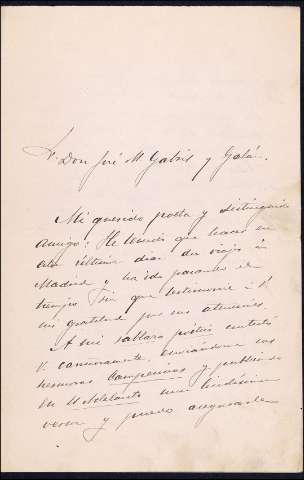 Sr. Don José M Gabriel y Galán.
Mi querido poeta y distinguido
amigo: He tenido que hacer en
estos últimos días un viaje á
Madrid y ha ido pasando el
tiempo sin que testimonie á V.
mi gratitud por sus atenciones
A mi
V. cariñosamente, enviándome sus
hermosas Campesinas y publicando
en El Adelanto unos lindísimos
versos y puedo asegurarle